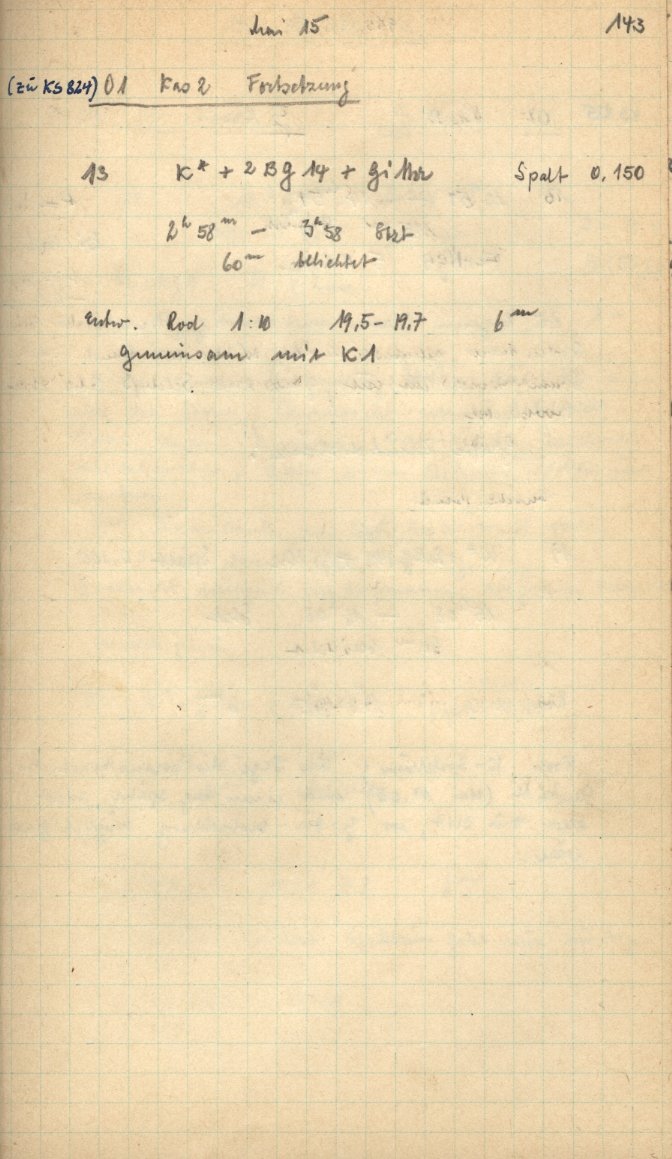 Mai 15 143
(zu KS 824) O1 Kas 2 Fortsetzung
13 K* + 2 BG 14 + Gitter Spalt 0,150
2h 58m — 3h 58
60m belichtet
Entw. Rod 1:10 19,5 - 19,7 6m
gemeinsam mit K1